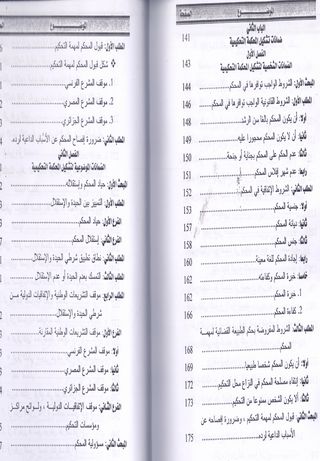 الموضوع الصفحة
الباب الثاني
ضمانات تشكيل المحكمة التحكيمية 141
الفصل الأول
الضمانات الشخصية لتشكيل المحكمة التحكيمية 143
المبحث الأول: الشروط الواجب توفرها في المحكم 144
المطلب الأول: الشروط القانونية الواجب توفرها في المحكم 144
أولا: أن يكون المحكم بالغا سن الرشد 148
ثانيا: أن لا يكون المحكم محجورا عليه 149
ثالثا: عدم الحكم على المحكم بجناية أو جنحة 150
رابعا: عدم شهر إفلاس المحكم 151
المطلب الثاني: الشروط الإتفاقية في المحكم 152
أولا: جنسية المحكم 153
ثانيا: ديانة المحكم 157
ثالثا: جنس المحكم 158
رابعا: إجادة المحكم للغة معينة 160
خامسا: خبرة المحكم وكفاءته 162
1. خبرة المحكم 162
2. كفاءة المحكم 166
المطلب الثالث: الشروط المفروضة بحكم الطبيعة القضائية لمهمة
المحكم 168
أولا: أن يكون المحكم شخصا طبيعيا 169
ثانيا: إنتفاء مصلحة المحكم في النزاع محل التحكيم 172
ثالثا: ألا يكون الشخص ممنوعا من التحكيم 173
المبحث الثاني: قبول المحكم لمهمة التحكيم، وضرورة إفصاحه عن
الأسباب الداعية لرده 175
الموضوع
المطلب الأول: قبول المحكم لمهمة التحكيم
شكل قبول المحكم لمهمة التحكيم
1. موقف المشرع الفرنسي
2. موقف المشرع المصري
3. موقف المشرع الجزائري
المطلب الثاني: ضرورة إفصاح المحكم عن الأسباب الداعية لرده
الفصل الثاني
الضمانات الموضوعية لتشكيل المحكمة التحكيمية
المبحث الأول: حياد المحكم وإستقلاله
المطلب الأول: التمييز بين الحيدة والإستقلال
الفرع الأول: حياد المحكم
الفرع الثاني: إستقلال المحكم
المطلب الثاني: نطاق تطبيق شرطي الحيدة والإستقلال
المطلب الثالث: التمسك بعدم الحيدة أو عدم الإستقلال
المطلب الرابع: موقف التشريعات الوطنية والإتفاقيات الدولية من
شرطي الحيدة والإستقلال
الفرع الأول: موقف التشريعات الوطنية المقارنة
أولا: موقف المشرع الفرنسي
ثانيا: موقف المشرع المصري
ثالثا: موقف المشرع الجزائري
الفرع الثاني: موقف الإتفاقيات الدولية، ولوائح مراكز
ومؤسسات التحكيم
المبحث الثاني: مسؤولية المحكم